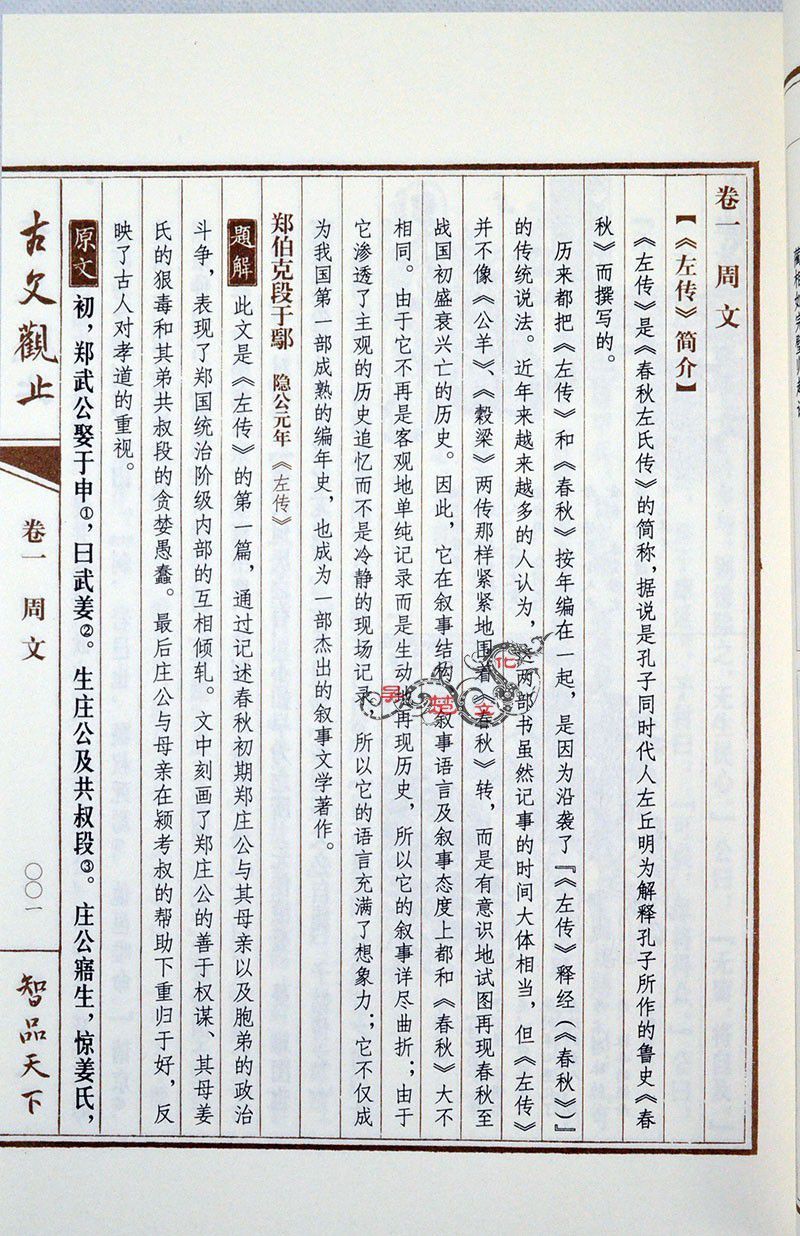 卷一 周文
【《左传》简介】
《左传》是《春秋左氏传》的简称，据说是孔子同时代人左丘明为解释孔子所作的鲁史《春
秋》而撰写的。
历来都把《左传》和《春秋》按年编在一起，是因为沿袭了『《左传》释经（《春秋》）』
的传统说法。近年来越来越多的人认为，这两部书虽然记事的时间大体相当，但《左传》
并不像《公羊》、《穀梁》两传那样紧紧地围着《春秋》转，而是有意识地试图再现春秋至
战国初盛衰兴亡的历史。因此，它在叙事结构、叙事语言及叙事态度上都和《春秋》大不
相同。由于它不再是客观地单纯记录而是生动地再现历史，所以它的叙事详尽曲折；由于
它渗透了主观的历史追忆而不是冷静的现场记录，所以它的语言充满了想象力；它不仅成
为我国第一部成熟的编年史，也成为一部杰出的叙事文学著作。
郑伯克段于鄢 隐公元年 《左传》
题解 此文是《左传》的第一篇，通过记述春秋初期郑庄公与其母亲以及胞弟的政治
斗争，表现了郑国统治阶级内部的互相倾轧。文中刻画了郑庄公的善于权谋、其母姜
氏的狠毒和其弟共叔段的贪婪愚蠢。最后庄公与母亲在颍考叔的帮助下重归于好，反
映了古人对孝道的重视。
原文 初，郑武公娶于申①，曰武姜②。生庄公及共叔段③。庄公寤生，惊姜氏，
古文觀止
卷一 周文
〇〇一
智品天下
吴楚文化